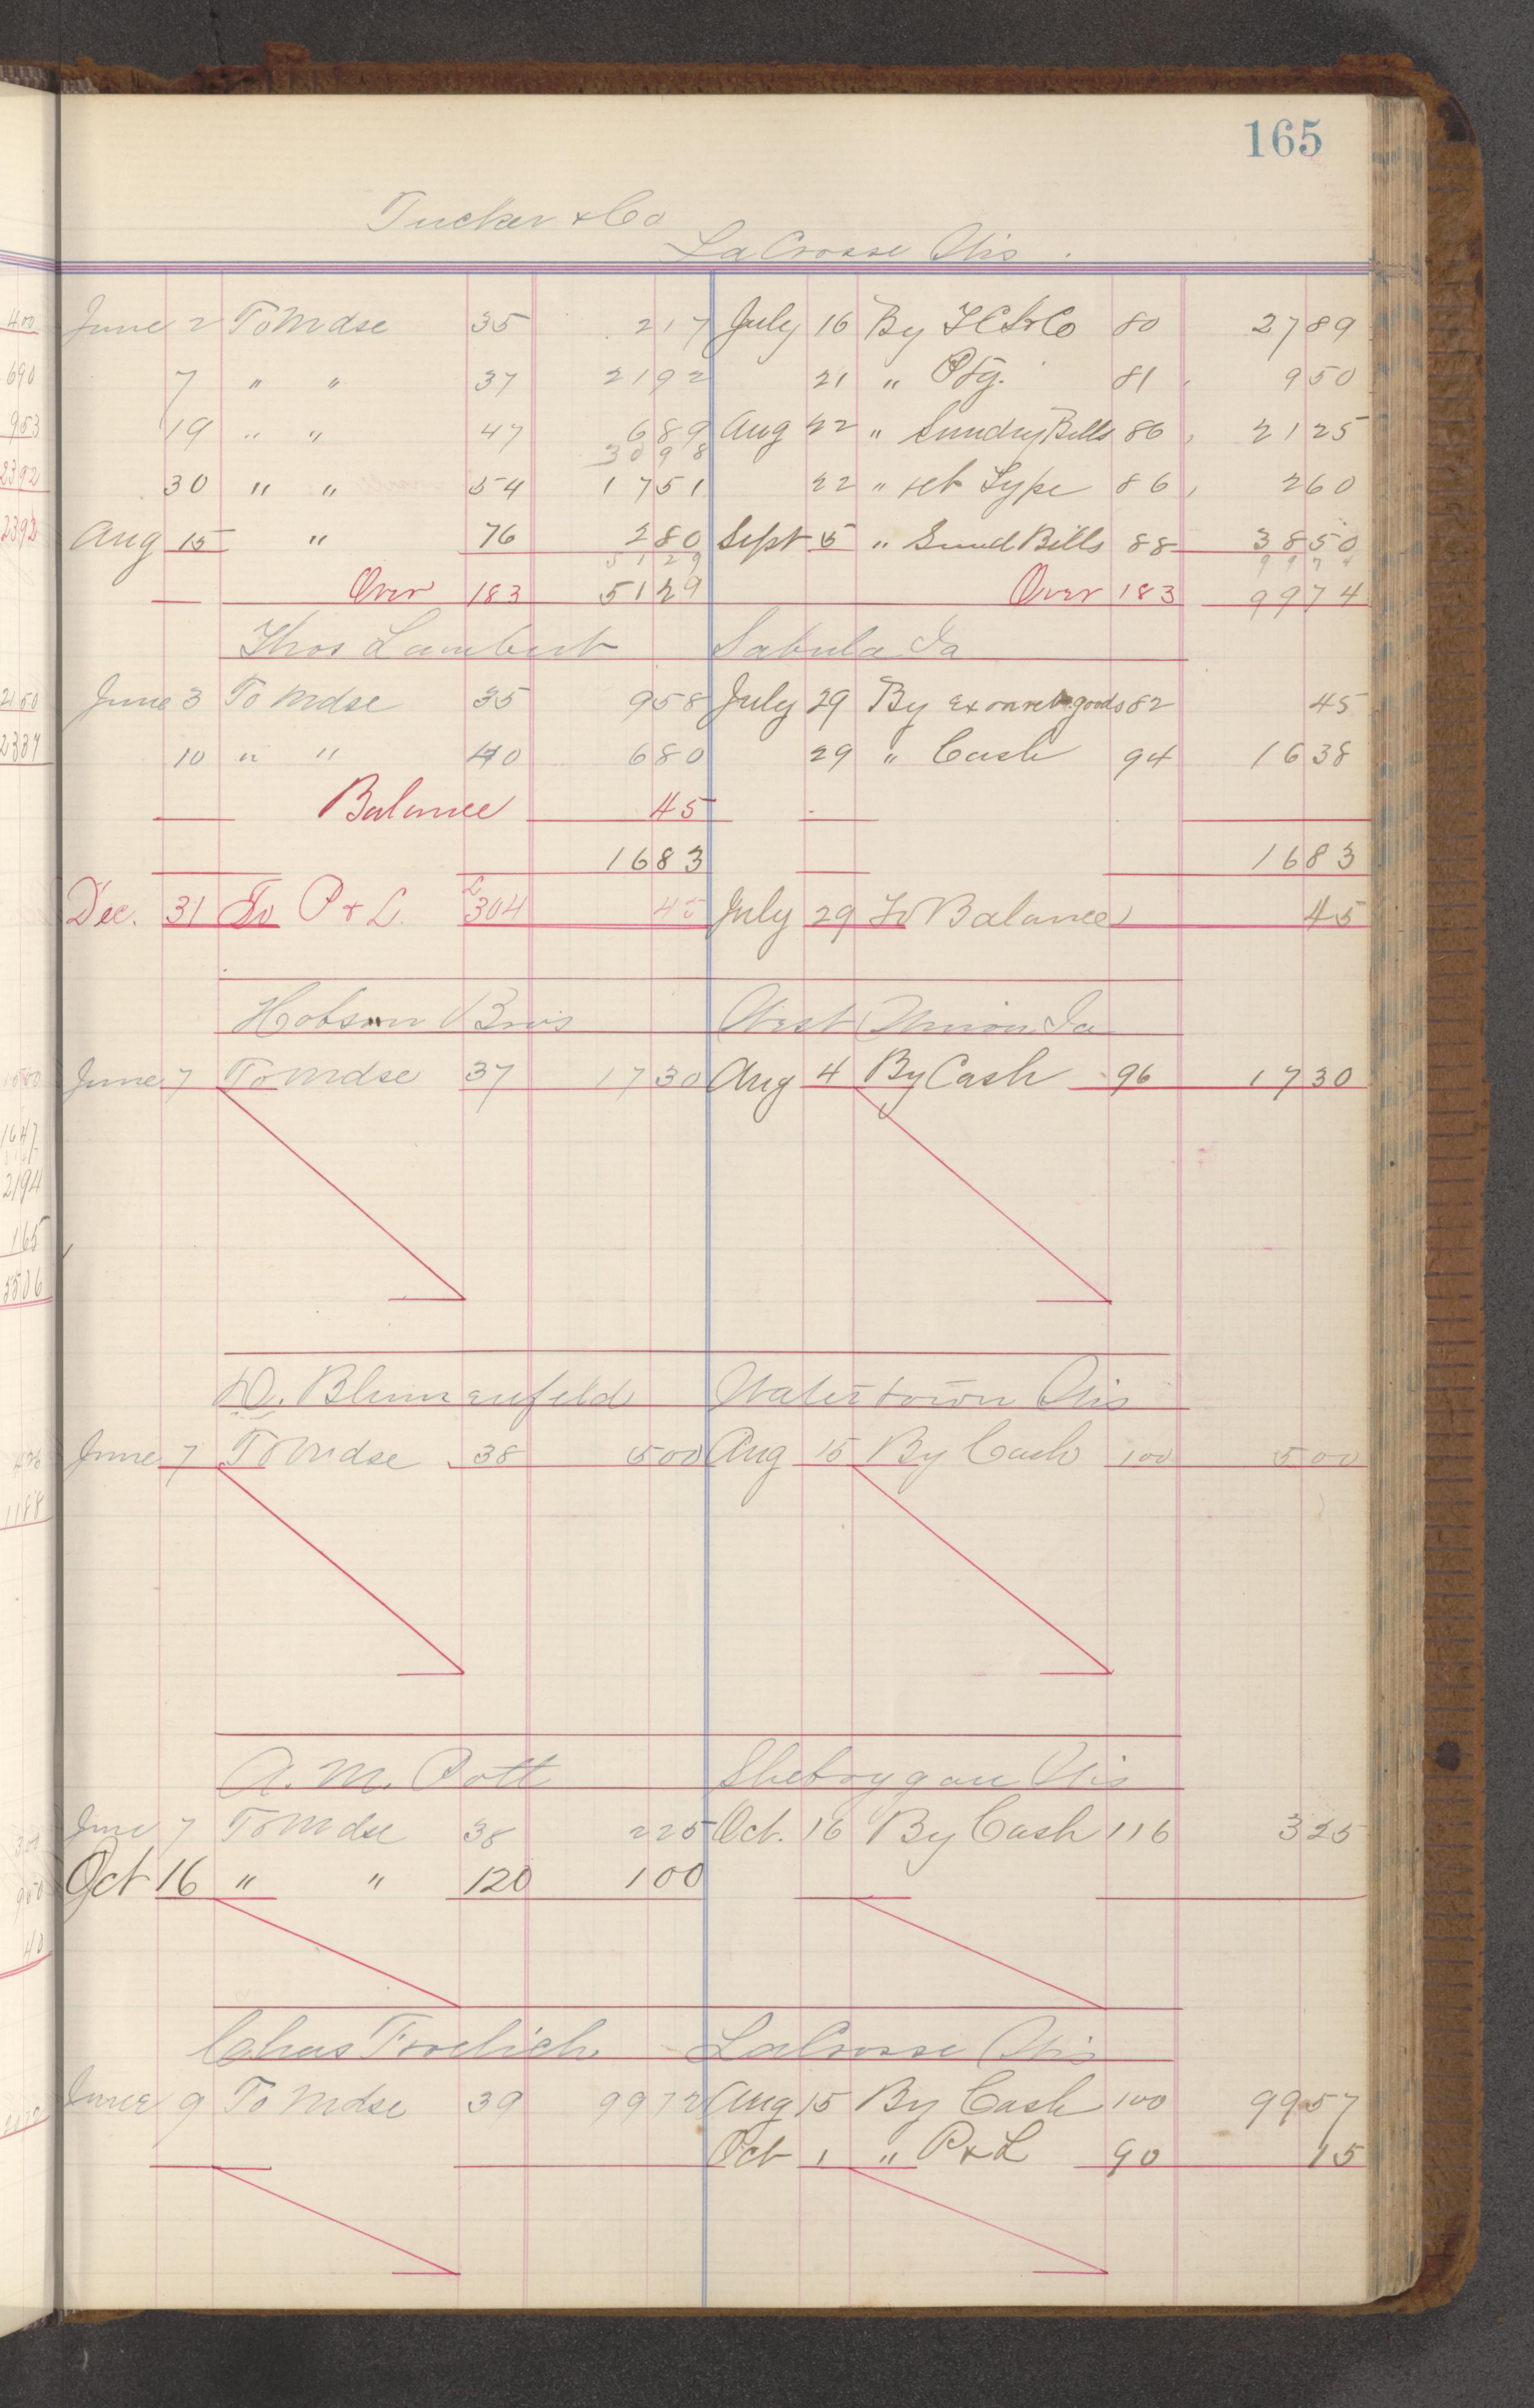 165
Tucker & Co
LaCrosse Wis.
June 2 To Mdse 35 217 July 16 By 80 2789
7 " " 37 2192 21 " Ptg. 81 950
19 " " 47 689 Aug 22 " Sundry Bills 86 2125
3098
30 " " 54 1751 22 " set Type 86 260
Aug 15 " 76 280 Sept 5 " Sund Bills 88 3850
5129 9974
Over 183 5129 Over 183 9974
Thos Lambert Sabula Ia
June 3 To Mdse 35 958 July 29 By Ex on ret. goods 82 45
10 " " 40 680 29 " Cash 94 1638
Balance 45
1683 1683
Dec. 31 To P & L. L 304 45 July 29 To Balance 45
Hobson Bros West Union Ia
June 7 To Mdse 37 1730 Aug 4 By Cash 96 1730
D. Blumenfeld Watertown Wis
June 7 To Mdse 38 500 Aug 15 By Cash 100 500
A. M. Pott Sheboygan Wis
June 7 To Mdse 38 225 Oct. 16 By Cash 116 325
Oct 16 " " 120 100
Chas Froelich LaCrosse Wis
June 9 To Mdse 39 9972 Aug 15 By Cash 100 9957
Oct 1 " P & L 90 15
400
690
953
2392
2392
2150
2337
1647
2194
165
5506
1188